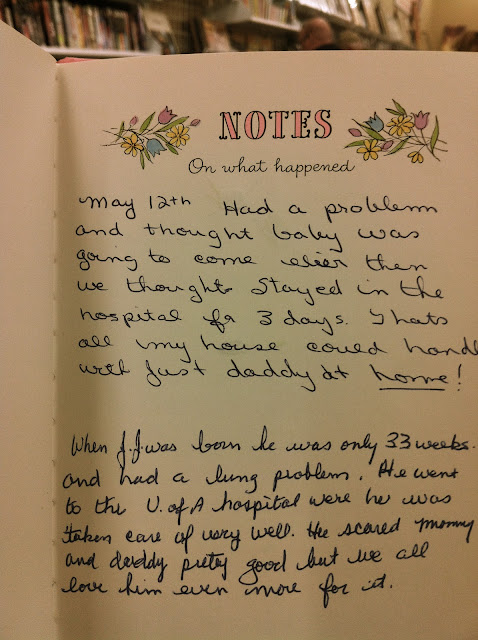 NOTES
On what happened
May 12th Had a problem
and thought baby was
going to come elier then
we thought. Stayed in the
hospital for 3 days. Thats
all my house could handl
with just daddy at home!
When J.J. was born he was only 33 weeks.
and had a lung problem. He went
to the U. of A hospital were he was
taken care of very well. He scared mommy
and daddy prety good but we all
love him even more for it.